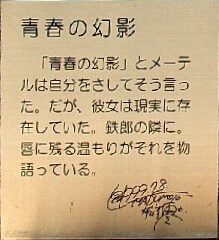 青春の幻影
「青春の幻影」とメーテ
ルは自分をさしてそう言っ
た。だが、彼女は現実に存
在していた。鉄郎の隣に。
唇に残る温もりがそれを物
語っている。